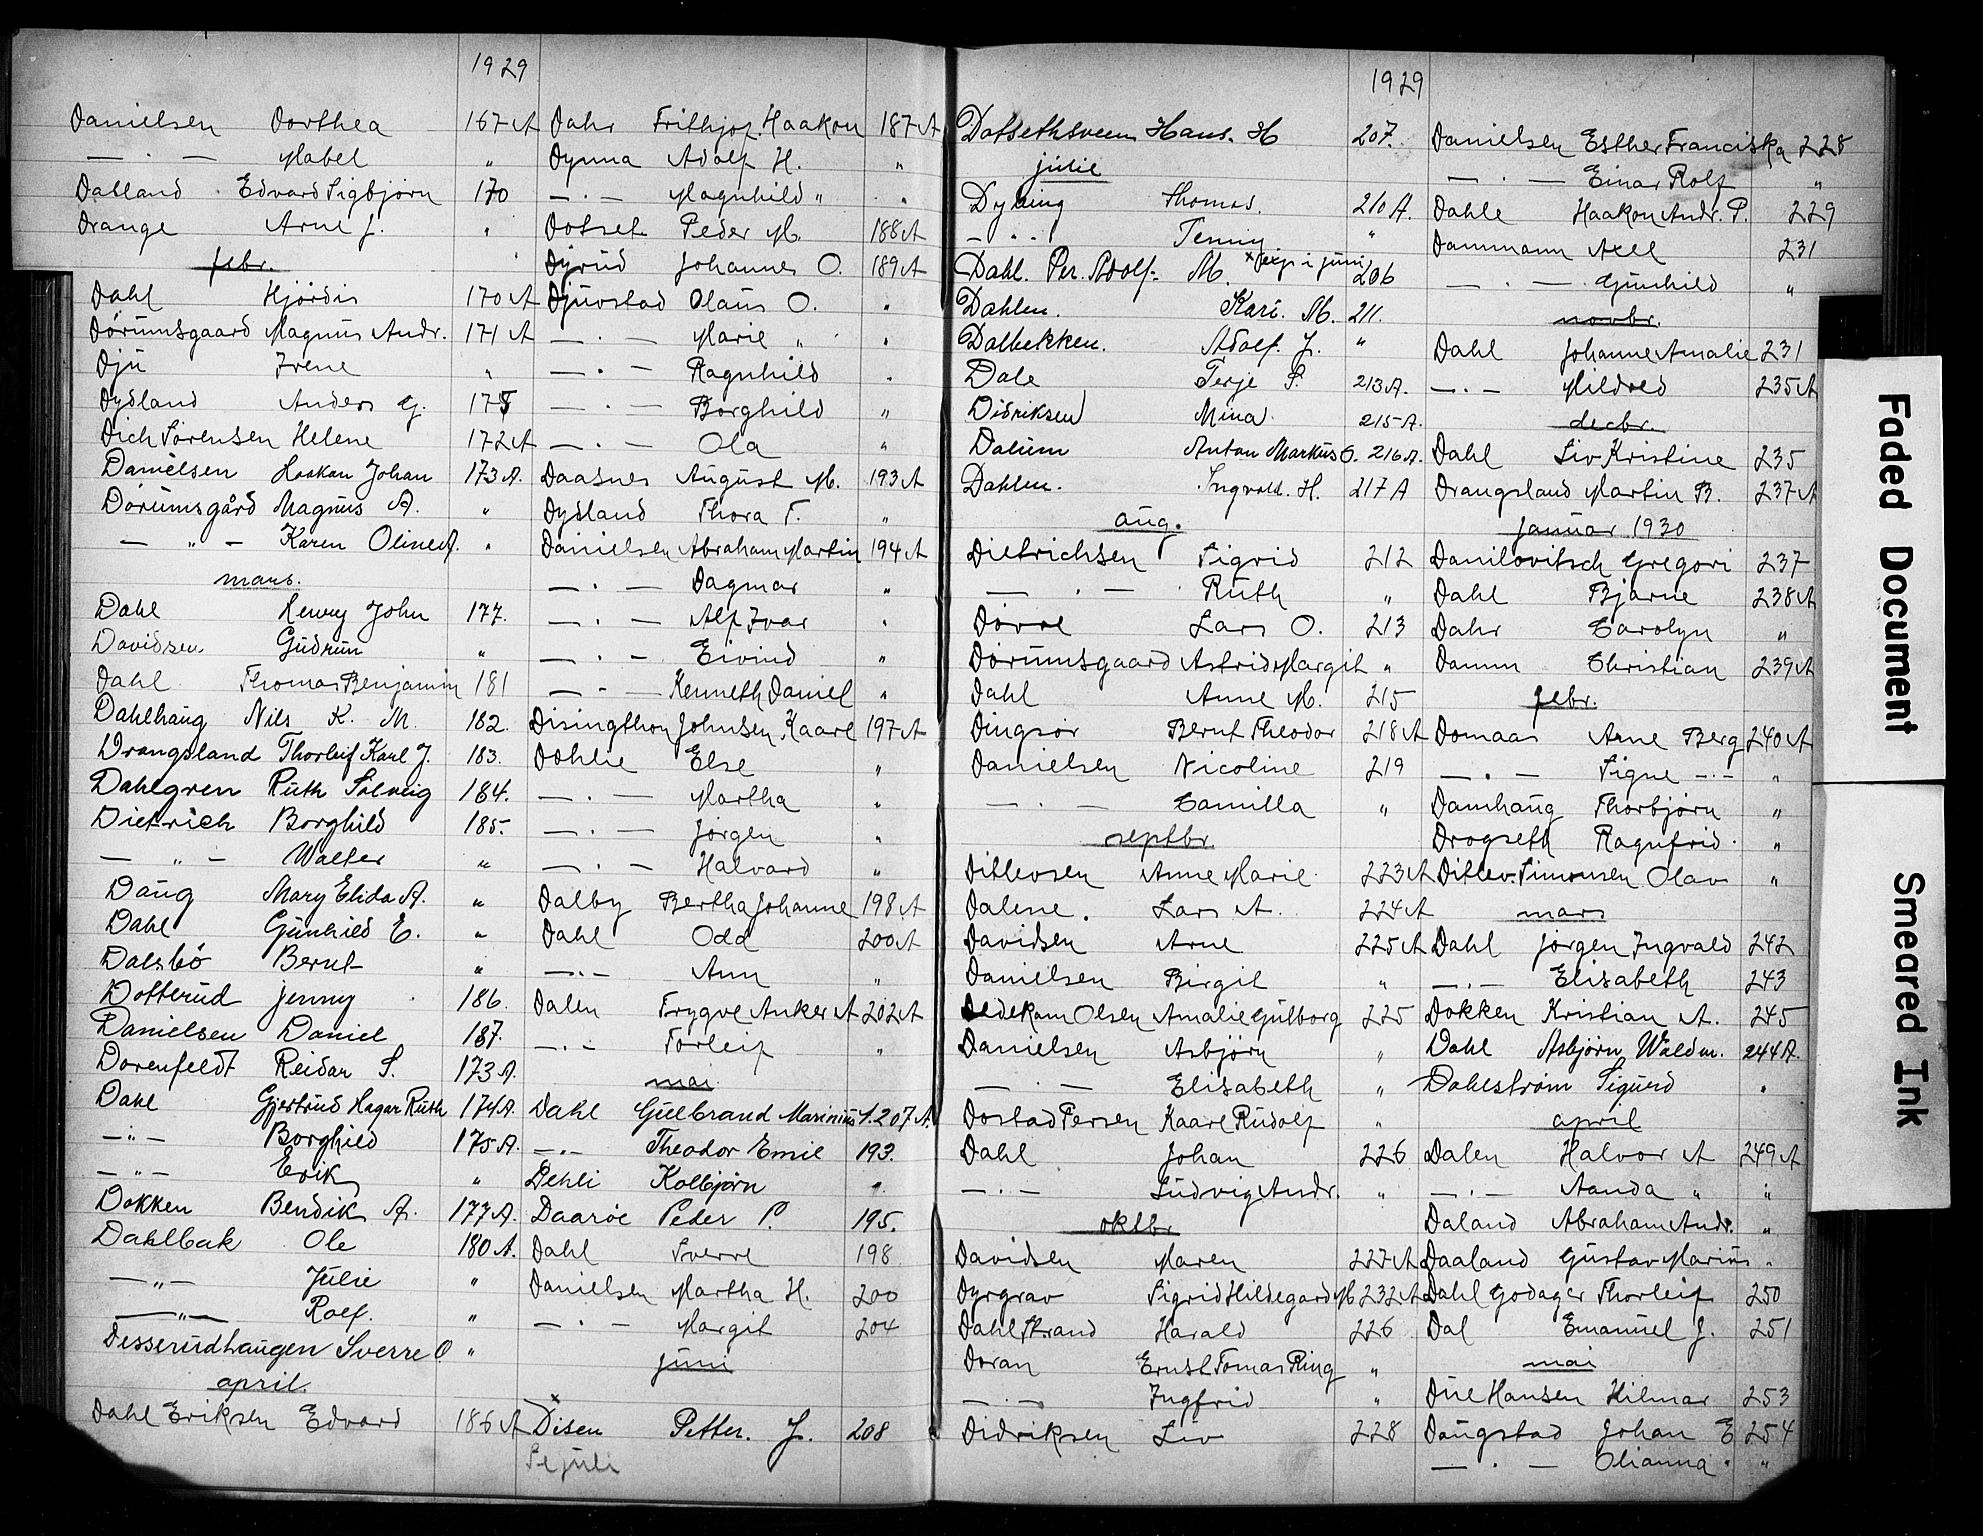 1929
Danielsen Dorthea 167 A
— · — Mabel "
Dalland Edvard Sigbjørn 170
Drange Arne J. "
febr.
Dahl Hjördis 170 A
Dørumsgaard Magnus Andr. 171 A
Dju Irene "
Dydland Anders G. 175
Dich Sørensen Helene 172 A
Danielsen Haakon Johan 173 A.
Dørumsgård Magnus A. "
— " — Karen Oline A. "
mars.
Dahl Henry John 177.
Davidsen Gudrun "
Dahl Thomas Benjamin 181
Dahlhaug Nils K. M. 182.
Drangsland Thorleif Karl J. 183.
Dahlgren Ruth Solveig 184.
Dietrich Borghild 185.
— " — Walter "
Daug Mary Elida A. "
Dahl Gunhild E. "
Dalsbö Bernt "
Dotterud Jenny 186.
Danielsen Daniel 187.
Dorenfeldt Reidar S. 173 A.
Dahl Gjertrud Hagar Ruth 174 A.
— " — Borghild 175 A.
— " — Erik "
Dokken Bendik A. 177 A.
Dahlbak Ole 180 A.
— " — Julie "
— " — Rolf. "
Desserudhaugen Sverre O "
april.
Dahl Eriksen Edvard 186 A
Dahr Frithjof Haakon 187 A
Dynna Adolf H. "
— · — Magnhild " "
Dotset Peder M. 188 A
Dyrud Johannes O. 189 A
Djuvstad Olaus O. "
— · — Marie " "
— · — Ragnhild "
— · — Borghild "
— · — Ola "
Daasnes August M. 193 A
Dydland Thora T. "
Danielsen Abraham Martin 194 A
— · — Dagmar "
— · — Alf Ivar "
— · — Eivind "
— · — Kenneth Daniel "
Disingthon Johnsen, Kaare 197 A
Døhlie Else "
— · — Martha "
— · — Jørgen "
— · — Halvard "
Dalby Bertha Johanne 198 A
Dahl Odd 200 A
— · — Ann "
Dalen Trygve Anker A 202 A
— · — Torleif "
mai
Dahl Gulbrand Marinius S. 207 A.
— · — Theodor Emil 193.
Dehli Kolbjørn "
Daaroe Peder P. 195.
Dahl Sverre 198
Danielsen Martha H. 200
— · — Margit 204
juni
x
Disen Petter. J. 208
Se juli
1929
Dotsethsveen Hans. H 207.
julie
Dybing Thomas. 210 A.
— · · Jenny. "
Dahl. Per. Adolf. M. 206
Dahlen. Kari. M. 211.
Dalbekken. Adolf. J. "
Dale Terje S. 213 A.
Didriksen Mina 215 A.
Dalum Anton Markus O. 216 A.
Dahlen. Ingvald. H. 217 A
aug.
Dietrichsen Sigrid 212
— · — Ruth "
Døvre Lars O. 213
Dørumsgaard Astrid Margit "
Dahl Anne M. 215
Dingsør Bernt Theodor 218 A
Danielsen Nicoline 219
— · — Camilla "
septbr.
Ditlevsen Anne Marie 223 A
Dalene. Lars A. 224 A
Davidsen Arne 225 A
Danielsen Birgit "
Dedekam Olsen Amalie Gulborg 225
Danielsen Asbjørn "
— · — Elisabeth "
Dostad Persen Kaare Rudolf "
Dahl Johan 226
— · — Ludvig Andr. "
oktbr
Davidsen Maren 227 A
Dyrgrav Sigrid Hildegard M 232 A
Dahlstrand Harald 226
Doran Ernst Tomas Ring "
— · — Ingfrid "
Didriksen Liv 228
Danielsen Esther Franciska 228
— · — Einar Rolf "
Dahle Haakon Andr. P. 229
Dammann Axel 231
— · — Gunhild "
novbr.
Dahl Johanne Amalie 231
— · — Mildred 235 A
decbr.
Dahl Liv Kristine 235
Drangsland Martin B. 237 A
januar 1930
Danilovitsch Gregori 237
Dahl Bjarne 238 A
Dahr Carolyn "
Damm Christian 239 A
febr.
Domaas Arne Berg 240 A
— · — Signe — · — "
Damhaug Thorbjørn "
Drogseth Ragnfrid "
Ditlev-Simonsen Olav "
mars
Dahl Jørgen Ingvald 242
— · — Elisabeth 243
Dokken Kristian A. 245
Dahl Asbjørn Waldm. 244 A.
Dahlstrøm Sigurd "
april
Dalen Halvor A 249 A
— · — Aanda " "
Daland Abraham Andr. "
Daaland Gustav Marius "
Dahl Godager Thorleif 250
Dal Emanuel J. 251
mai
Due Hansen Hilmar 253
Daugstad Johan E 254
— · — Olianna " "
Faded Document
Smeared Ink